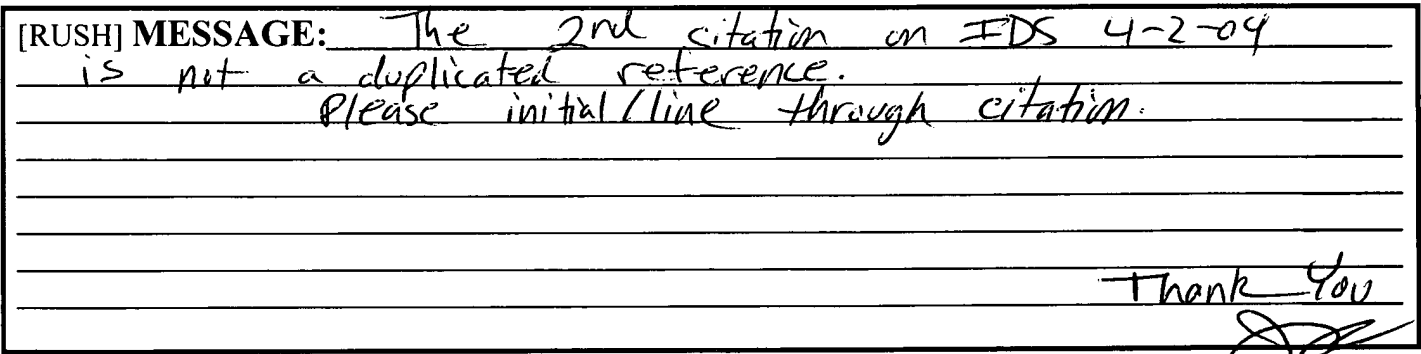 [RUSH] MESSAGE: The 2nd citation on IDS 4-2-04
is not a duplicated reference.
Please initial/line through citation.
Thank You